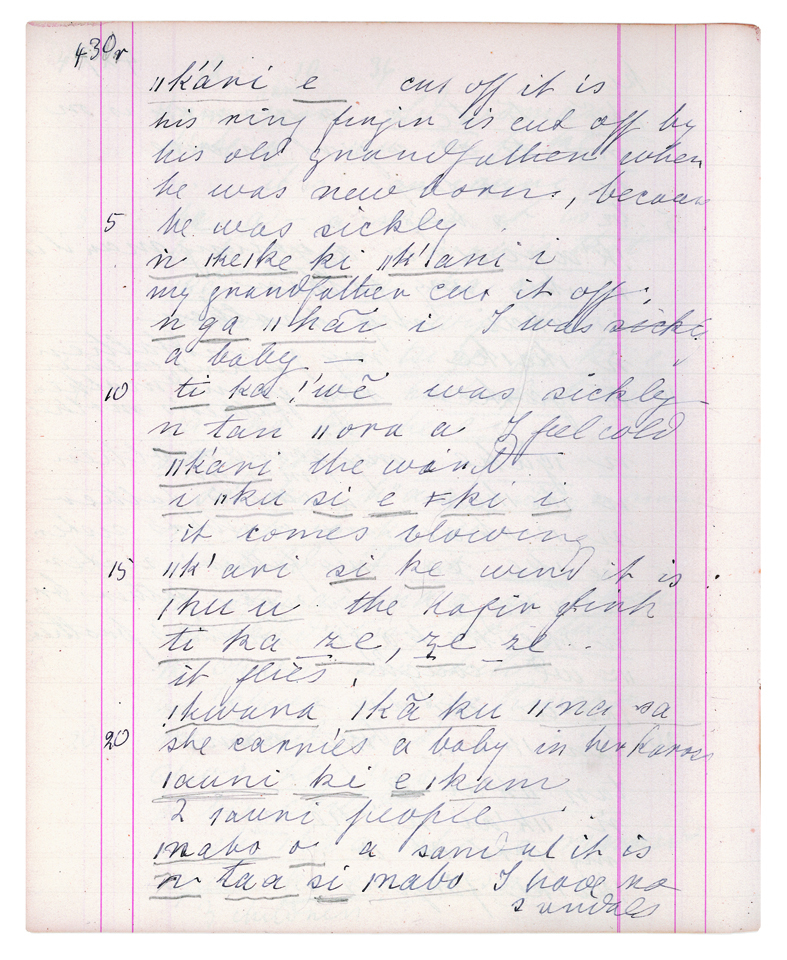 430r
ǁk'ári e cut off it is
his ring fingin is cut off by
his old grandfather when
he was new born, becaus
5 he was sickly
n ǀkeǀke ki ǁk'ani i
my grandfather cut it off,
n ga ǁhãi i I was sickl
a baby —
10 ti ka !'wĕ was sickly
n tan ǁora a I feel cold
ǁk'ari the wind
i ǁku si e ǂki i
it comes blowing
15 ǁk'ari si ke wind it is
ǀhu u the kafir fink
ti ka ze, ze ze
it flies,
ǃkwana ǀkã ku ǁna sa
20 she carries a baby in her kaross
ǀauni ki e ǀkam
2 ǀauni people
ǀnabo o a sandal it is
n taa si ǀnabo I have no
sandals